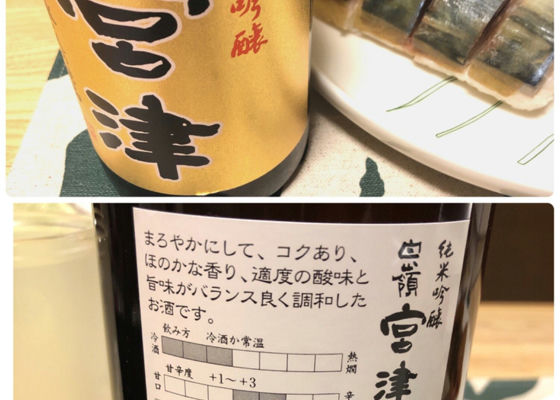 吟醸
宮津
まろやかにして、コクあり、
ほのかな香り、適度の酸味と
旨味がバランス良く調和した
お酒です。
飲み方 冷酒か常温
冷酒 熱燗
甘辛度 +1~+3
甘口 辛
純米吟醸
白嶺
宮津